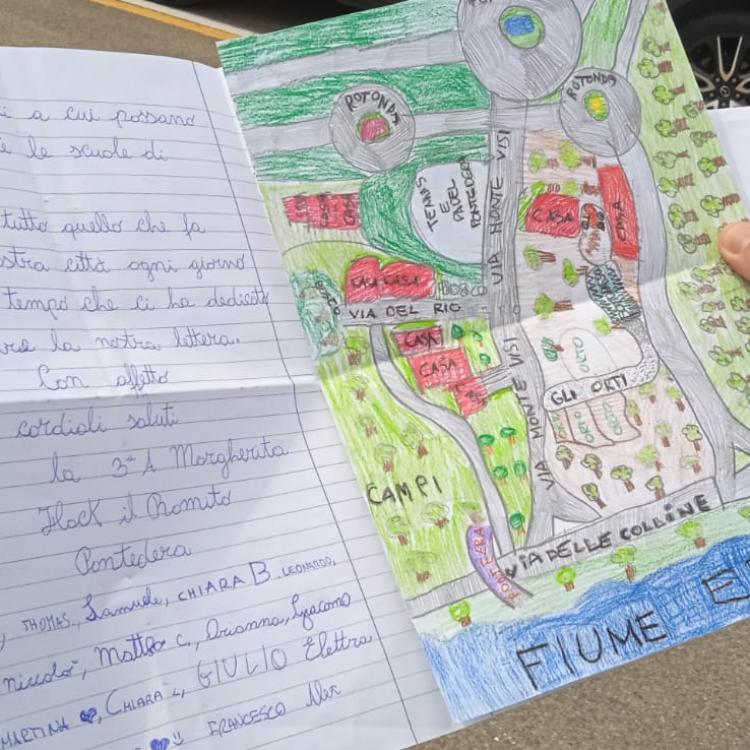 i a cui possano
e le scuole di
tutto quello che fa
stra città ogni giorno
tempo che ci ha dedicato
la nostra lettera.
Con affetto
cordiali saluti
la 3ª A Margherita
Hack il Romito
Pontedera
THOMAS, Samuele, CHIARA B. LEONARDO,
niccolò, Matteo C, Arianna, Giacomo
MARTINA, CHIARA L, GIULIO Elettra
FRANCESCO Alex
ROTONDA
ROTONDA
TENNIS
E
PADEL
PONTEDERA
VIA MONTE VISI
CASA
CASA
CASA
CASA
CASA
CASA
BOSCO
BOSCO
VIA DEL RIO
CASA
CASA
ORTO
GLI ORTI
ORTO
VIA MONTE VISI
CAMPI
VIA DELLE COLLINE
FIUME E